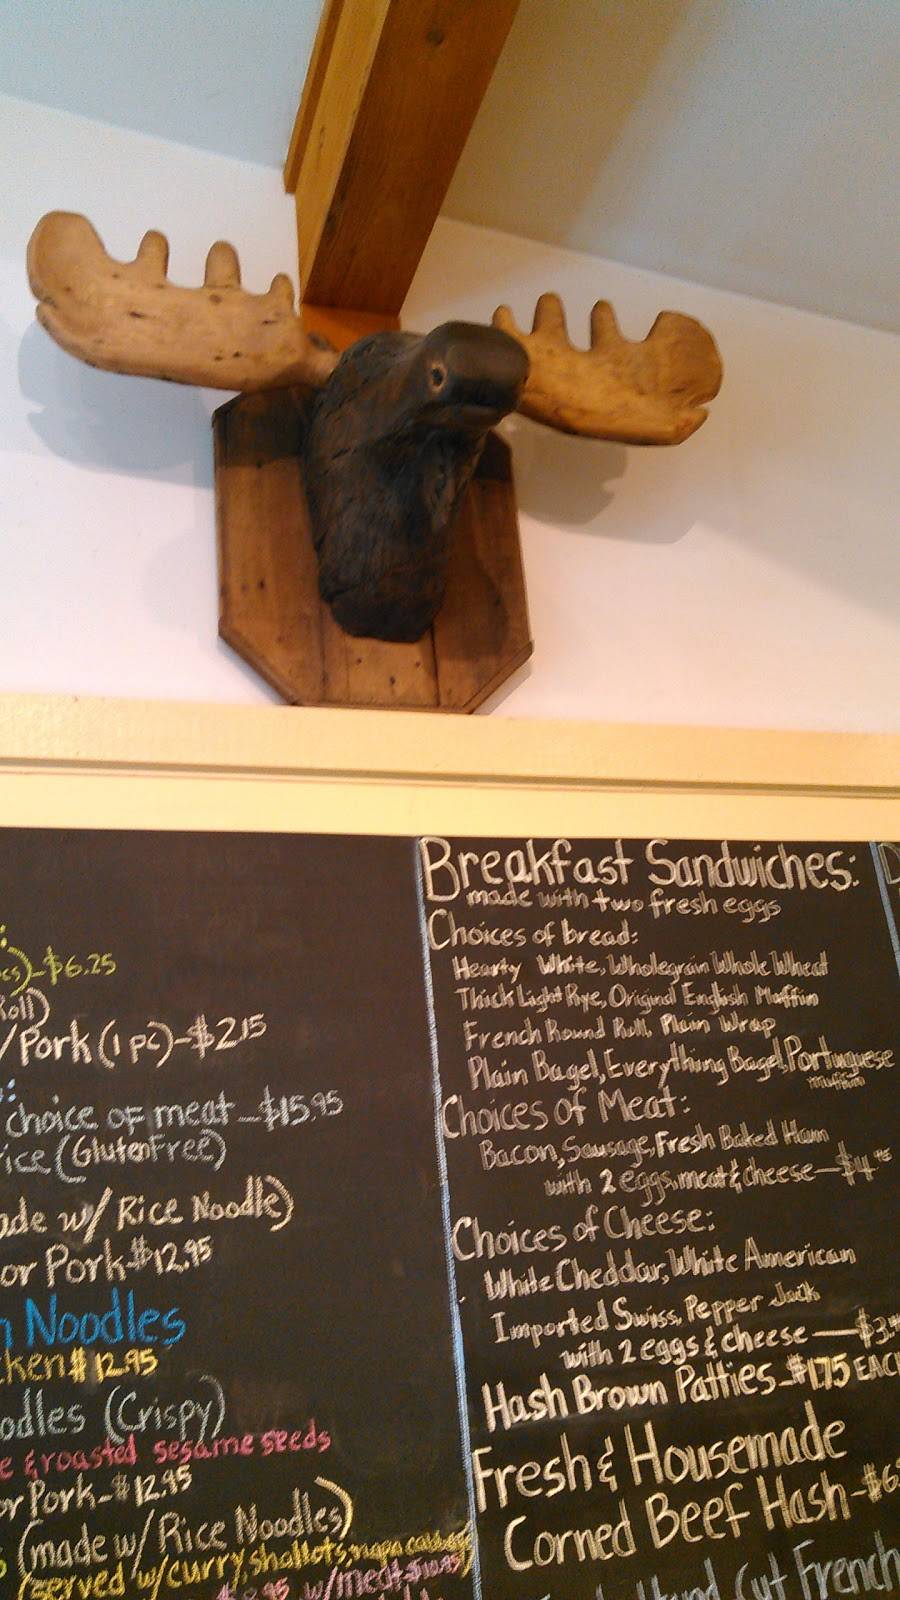 $6.25
Roll)
/Pork (1 pc)-$2.15
choice of meat-$15.95
rice (GlutenFree)
ade w/ Rice Noodle)
or Pork-$12.95
n Noodles
cken $12.95
odles (Crispy)
e & roasted sesame seeds
or Pork-$12.95
(made w/ Rice Noodles)
(served w/curry, shallots, napa cabbage
w/meat-$10.95)
Breakfast Sandwiches:
made with two fresh eggs
Choices of bread:
Hearty White, Wholegrain Whole Wheat
Thick Light Rye, Original English Muffin
French Round Roll, Plain Wrap
Plain Bagel, Everything Bagel, Portuguese
muffin
Choices of Meat:
Bacon, Sausage, Fresh Baked Ham
with 2 eggs, meat & cheese-$4.95
Choices of Cheese:
White Cheddar, White American
Imported Swiss, Pepper Jack
with 2 eggs & cheese-$3.
Hash Brown Patties-$1.75 EACH
Fresh & Housemade
Corned Beef Hash-$6.
Hand Cut French